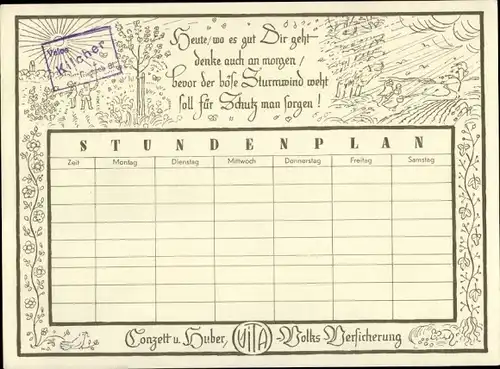 Heute, wo es gut Dir geht
denke auch an morgen,
bevor der böse Sturmwind weht
soll für Schutz man sorgen!
Velos
Kilcher
STUNDENPLAN
Zeit Montag Dienstag Mittwoch Donnerstag Freitag Samstag
Conzett u. Huber, VITA Volks Versicherung